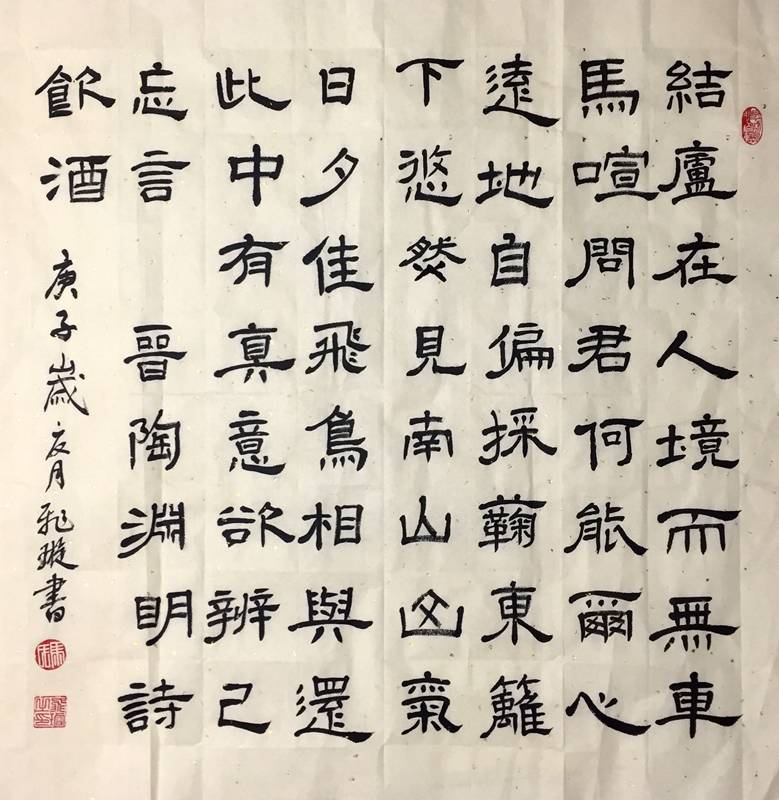 結廬在人境而無車
馬喧問君何能爾心
遠地自偏採蘜東籬
下悠然見南山山氣
日夕佳飛鳥相與還
此中有真意欲辨已
忘言 晉陶淵明詩
飲酒 庚子歲月璇書